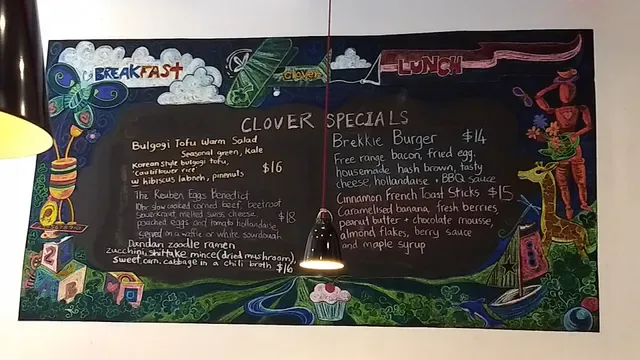 BREAKFAST
clover
LUNCH
CLOVER SPECIALS
Bulgogi Tofu Warm Salad
Seasonal green, Kale
Korean style bulgogi tofu,
Cauliflower rice
w hibiscus labneh, pinenuts
$16
The Reuben Eggs Benedict
slow cooked corned beef, beetroot
sauerkraut, melted swiss cheese,
poached eggs and tomato hollandaise
served on a waffle or white sourdough
$18
Dandan zoodle ramen
zucchini, shittake mince (dried mushroom),
sweet corn, cabbage in a chili broth $16
Brekkie Burger $14
Free range bacon, fried egg,
housemade hash brown, tasty
cheese, hollandaise + BBQ sauce
Cinnamon French Toast Sticks $15
Caramelised banana, fresh berries,
peanut butter + chocolate mousse,
almond flakes, berry sauce
and maple syrup
2
B